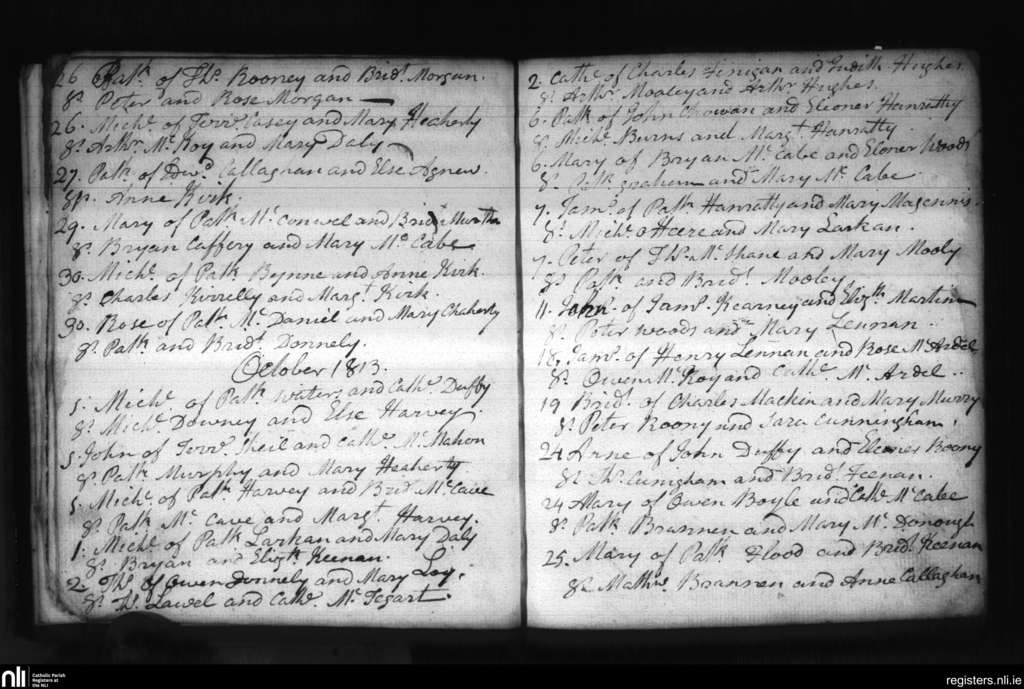 26 Patk. of Ths. Rooney and Bridt. Morgan.
Sps. Peter and Rose Morgan
26. Michl. of Terre. Casey and Mary Heaherty
Sps. Arthr. Mc. Koy and Mary Daly
27. Patk. of Edwd. Callaghan and Else Agnew.
Sps. Anne Kirk.
29. Mary of Patk. Mc. Conwel and Brid. Murtha
Sps. Bryan Caffery and Mary Mc Cabe
30. Michl. of Patk. Bynne and Anne Kirk.
Sps. Charles Kirrelly and Margt. Kirk.
30. Rose of Patk. Mc. Daniel and Mary Chaherty
Sps. Patk. and Bridt. Donnely.
October 1813.
5. Michl. of Patk. Waters and Cathe. Duffy
Sps. Michl. Downey and Else Harvey.
5. John of Terre. Sheil and Cathe. Mc. Mahon
Sps. Patk. Murphy and Mary Heaherty
5. Michl. of Patk. Harvey and Brid. Mc. Cave
Sps. Patk Mc. Cave and Margt. Harvey.
1. Michl. of Patk Larkan and Mary Daly
Sps. Bryan and Elizth. Keenan.
2 Ths. of Owen Donnely and Mary
Sps. Ths. Lawel and Cathe. Mc. Tegart.
2. Cathe. of Charles Finigan and Judith Hughes.
Sps. Arthr. Mooley and Arthr. Hughes.
6. Patk of John and Eleoner Hanratty
Sps. Michl. Burns and Margt. Hanratty.
6. Mary of Bryan Mc. Cabe and Eloner Woods
Sps. Patk. graham and Mary Mc. Cabe
7. Jams. of Patk. Hanratty and Mary Magennis.
Sps. Michl. OHeere and Mary Larkan.
7. Peter of Ths. Mc. Shane and Mary Mooly
Sps. Patk. and Bridt. Mooley
11. of Jams. Kearney and Elizth. Martin
Sps. Peter woods and Mary Lennan.
18. Jams. of Henry Lennan and Rose Mc. Ardel
Sps. Owen Mc. Koy and Cathe. Mc. Ardel.
19 Bridt. of Charles Mackin and Mary Murry
Sps. Peter Roony and Sara Cunningham.
24 Anne of John Duffy and Roony
Sps. Ths. Cunigham and Bridt. Feenan.
24 Mary of Owen Boyle and Cathe. Mc Cabe
Sps. Patk Brannen and Mary Mc. Donough
25. Mary of Patk. Flood and Bridt. Keenan
Sps. Mathw. Brannen and Anne Callaghan
nli
Catholic Parish
Registers at
the NLI
registers.nli.ie